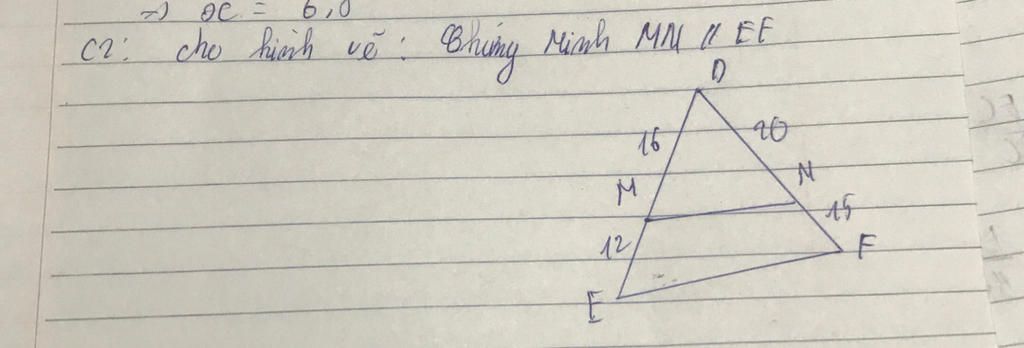 => OC = 6,0
C2: cho hình vẽ: Chứng minh MN // EF
D
16
20
M
N
12
15
F
E